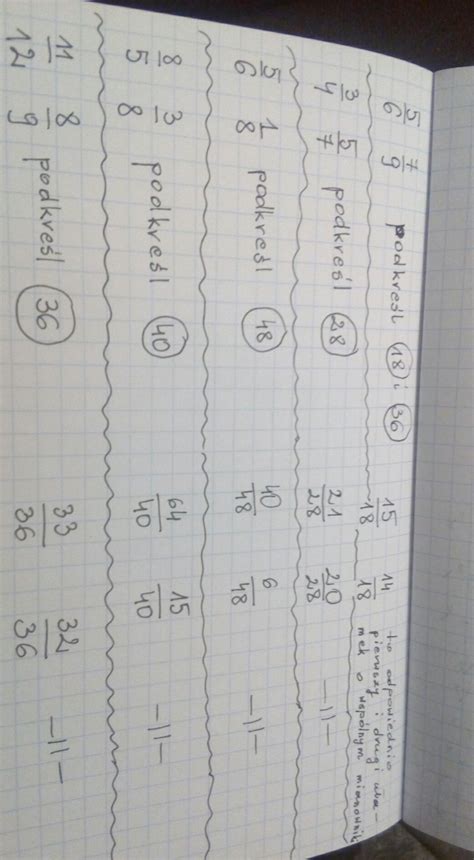 5/6 7/9 podkreśl 18 i 36 15/18 14/18 to odpowiednio
pierwszy i drugi uła-
mek o wspólnym mianownik
3/4 5/7 podkreśl 28 21/28 20/28 -||-
5/6 1/8 podkreśl 48 40/48 6/48 -||-
8/5 3/8 podkreśl 40 64/40 15/40 -||-
11/12 8/9 podkreśl 36 33/36 32/36 -||-